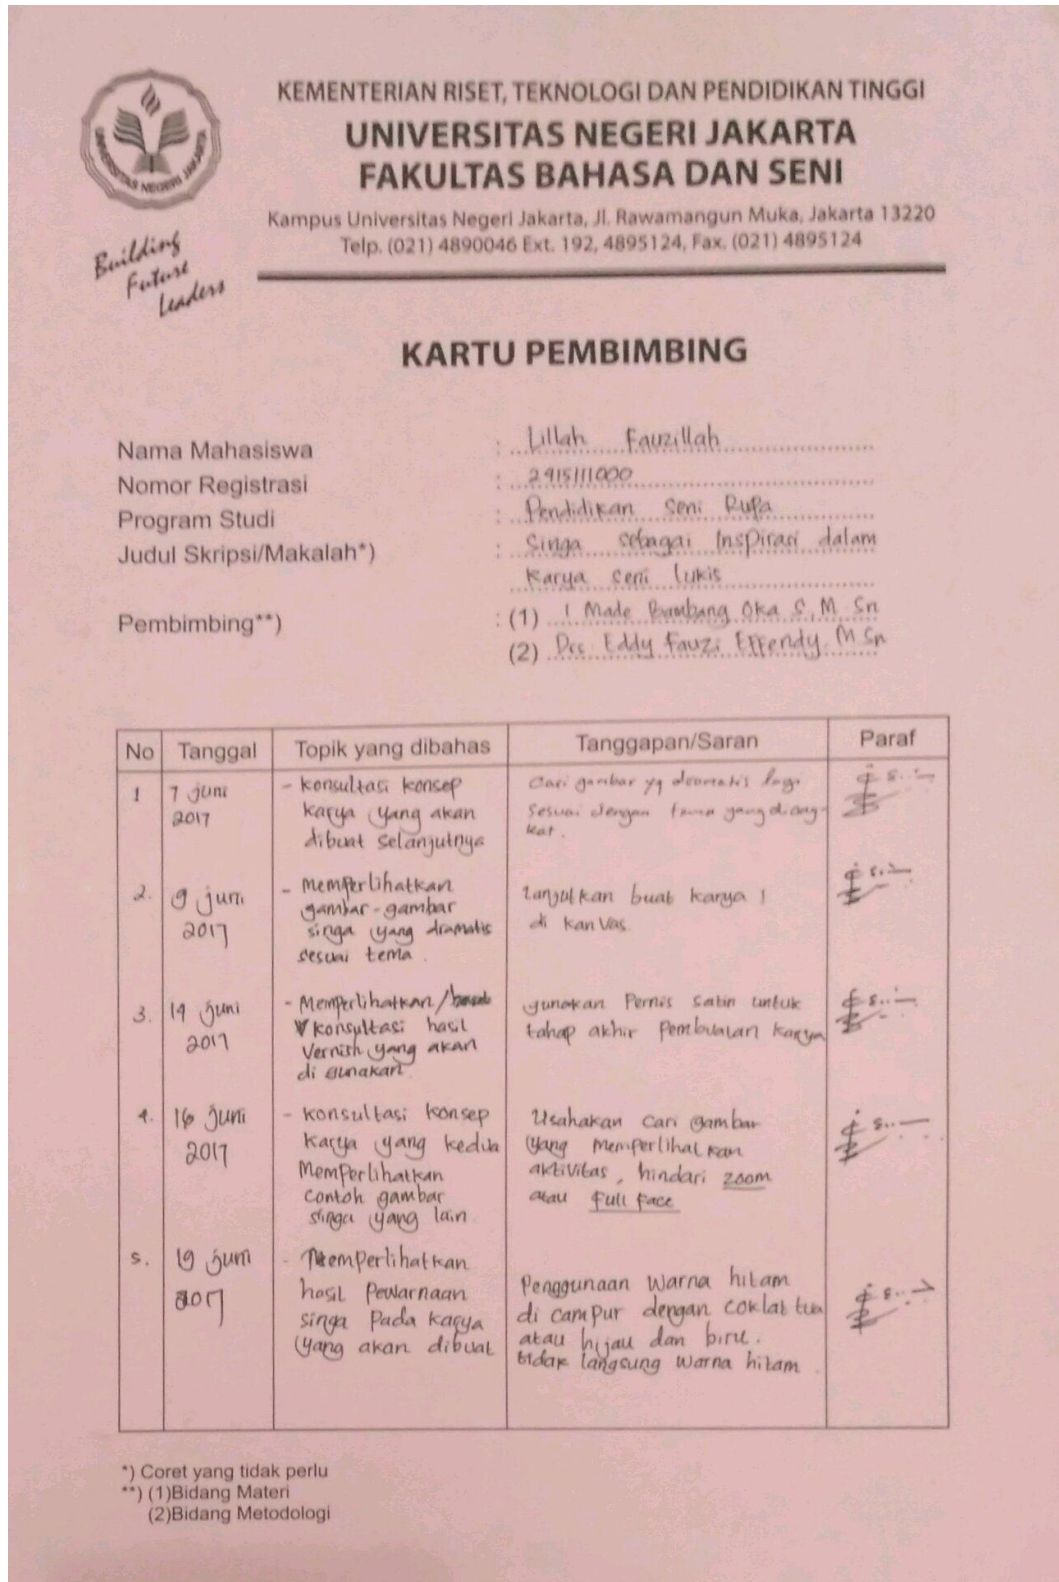 KEMENTERIAN RISET, TEKNOLOGI DAN PENDIDIKAN TINGGI
UNIVERSITAS NEGERI JAKARTA
FAKULTAS BAHASA DAN SENI
Kampus Universitas Negeri Jakarta, Jl. Rawamangun Muka, Jakarta 13220
Telp. (021) 4890046 Ext. 192, 4895124, Fax. (021) 4895124
UNIVERSITAS NEGERI JAKARTA
Building
Future
Leaders
KARTU PEMBIMBING
Nama Mahasiswa : Lillah Fauzillah
Nomor Registrasi : 2915111000
Program Studi : Pendidikan Seni Rupa
Judul Skripsi/Makalah*) : Singa sebagai Inspirasi dalam
Karya Seni Lukis
Pembimbing**) : (1) I Made Bambang Oka S, M Sn
(2) Drs Eddy Fauzi Effendy. M Sn
No Tanggal Topik yang dibahas Tanggapan/Saran Paraf
1 7 juni
2017
- konsultasi konsep
karya yang akan
dibuat selanjutnya
Cari gambar yg dramatis lagi
sesuai dengan tema yang diang-
kat.
2. 9 juni
2017
- Memperlihatkan
gambar-gambar
singa yang dramatis
sesuai tema.
Lanjutkan buat karya 1
di kanvas
3. 14 juni
2017
- Memperlihatkan /
konsultasi hasil
Vernish yang akan
di gunakan
gunakan Pernis Satin untuk
tahap akhir Pembuatan karya
4. 16 juni
2017
- konsultasi konsep
karya yang kedua
Memperlihatkan
contoh gambar
singa yang lain
Usahakan cari gambar
yang memperlihatkan
aktivitas, hindari zoom
atau full face
5. 19 juni
2017
- Memperlihatkan
hasil Pewarnaan
singa pada karya
yang akan dibuat
Penggunaan warna hitam
di campur dengan coklat tua
atau hijau dan biru.
tidak langsung warna hitam.
*) Coret yang tidak perlu
**) (1)Bidang Materi
(2)Bidang Metodologi